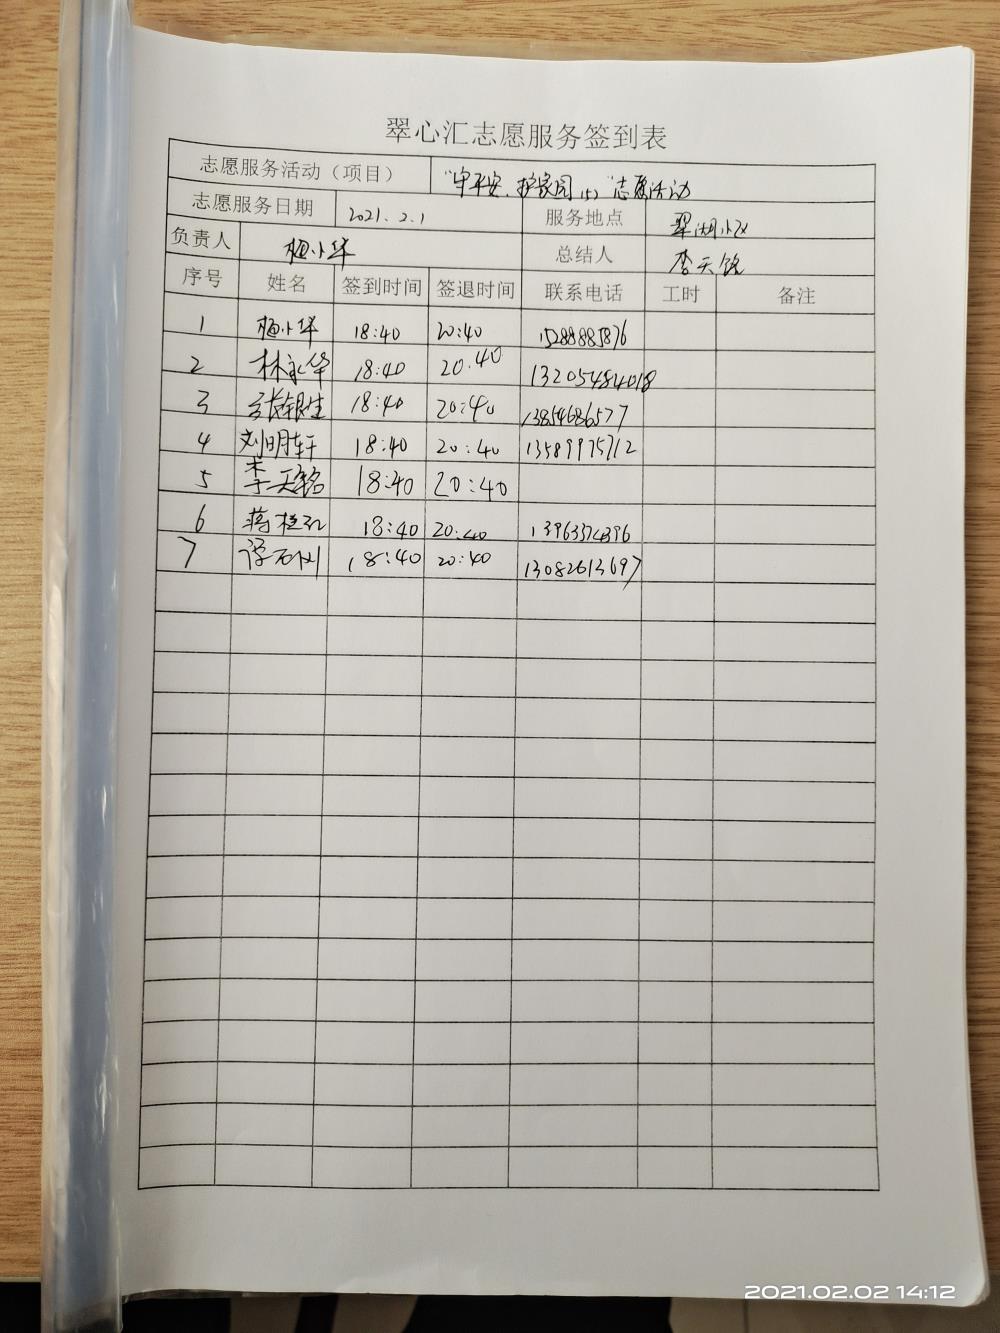 翠心汇志愿服务签到表
志愿服务活动（项目） "守平安、护家园（5）"志愿活动
志愿服务日期 2021.2.1 服务地点 翠湖小区
负责人 梅小华 总结人 李天铭
序号 姓名 签到时间 签退时间 联系电话 工时 备注
1 梅小华 18:40 20:40 15288885876
2 林永华 18:40 20.40 13205484018
3 张银生 18:40 20:40 13854686577
4 刘明轩 18:40 20:40 13589975712
5 李天铭 18:40 20:40
6 蒋桂 18:40 20:40 13963374396
7 18:40 20:40 13082613697
2021.02.02 14:12